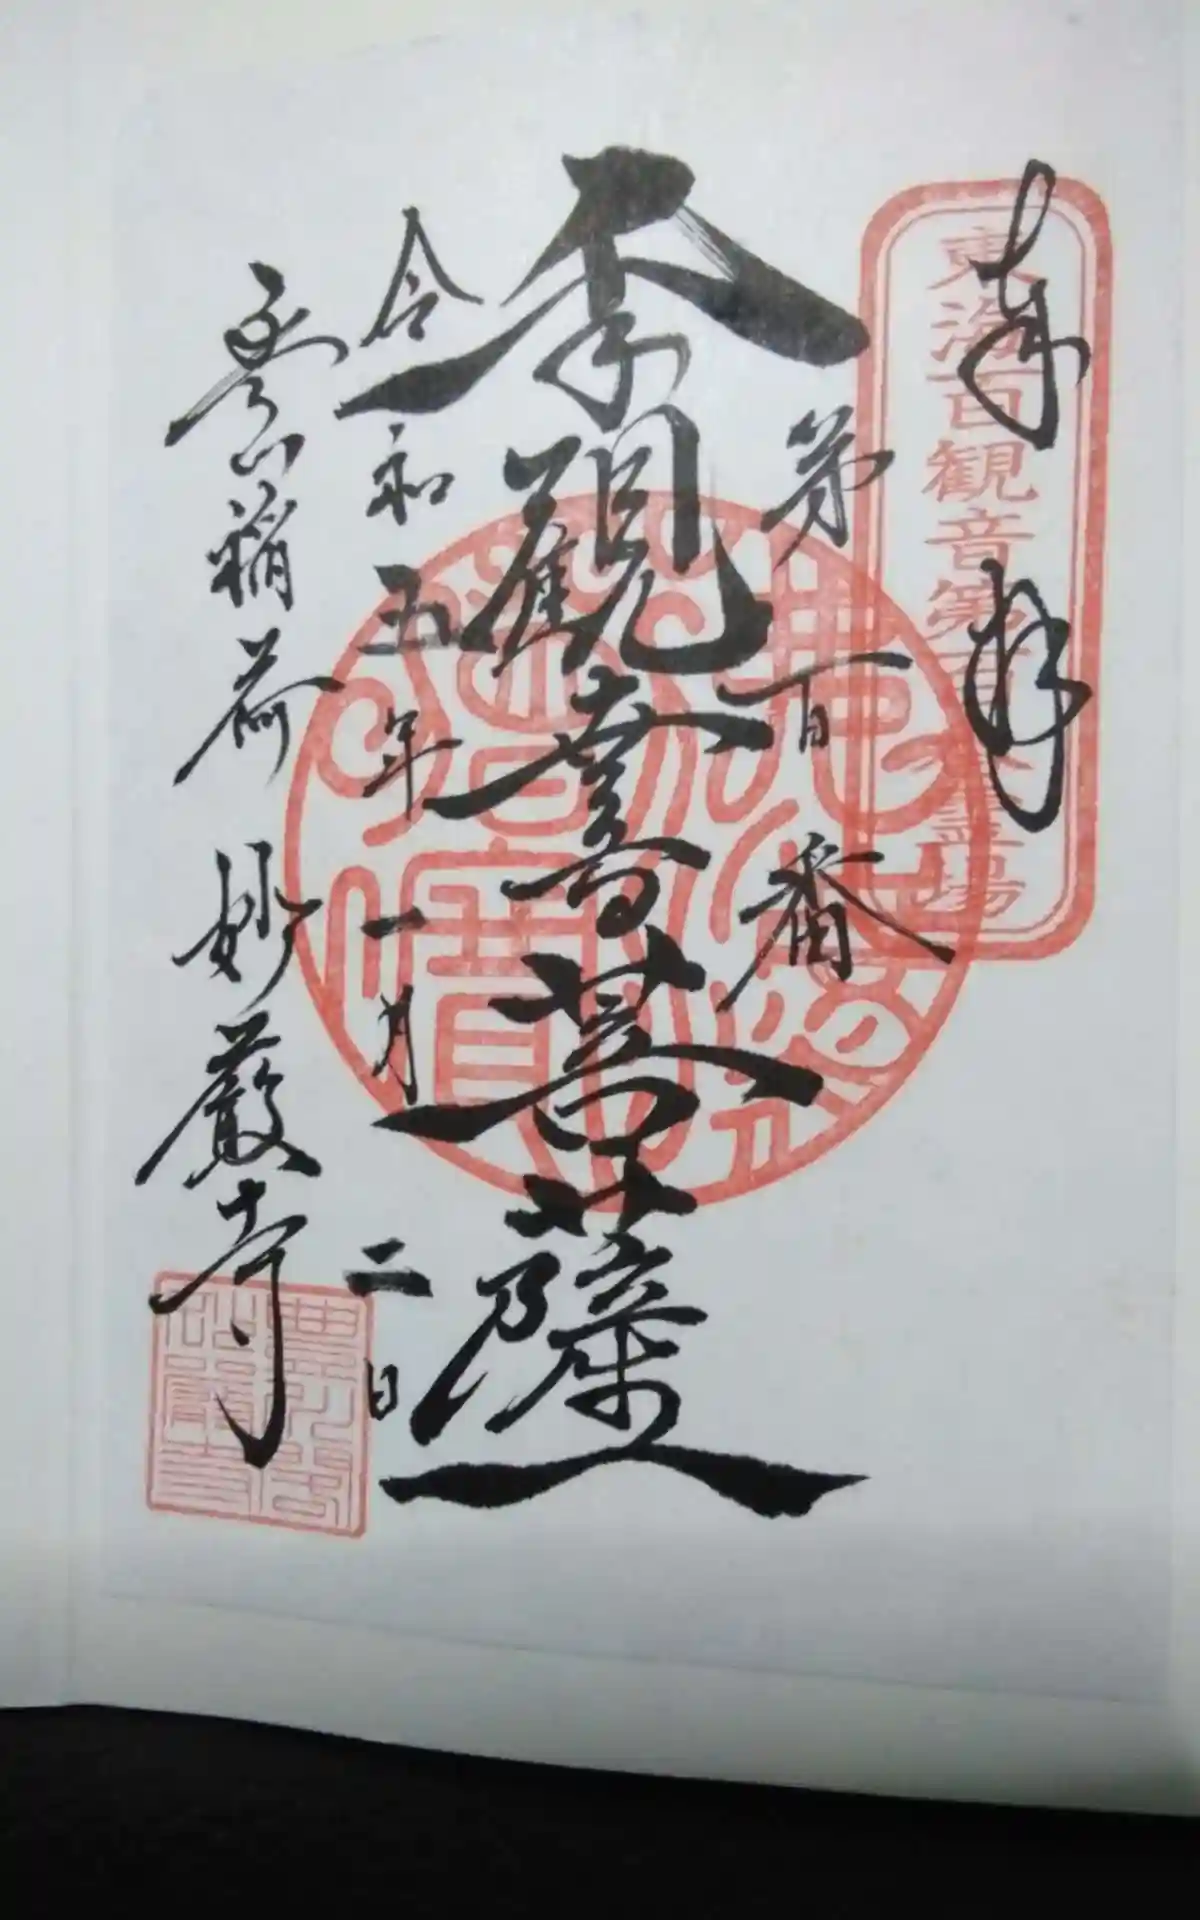 東海百観音第百番霊場
奉拝
第百番
千手觀音菩薩
令和五年一月二日
豊川稲荷 妙厳寺